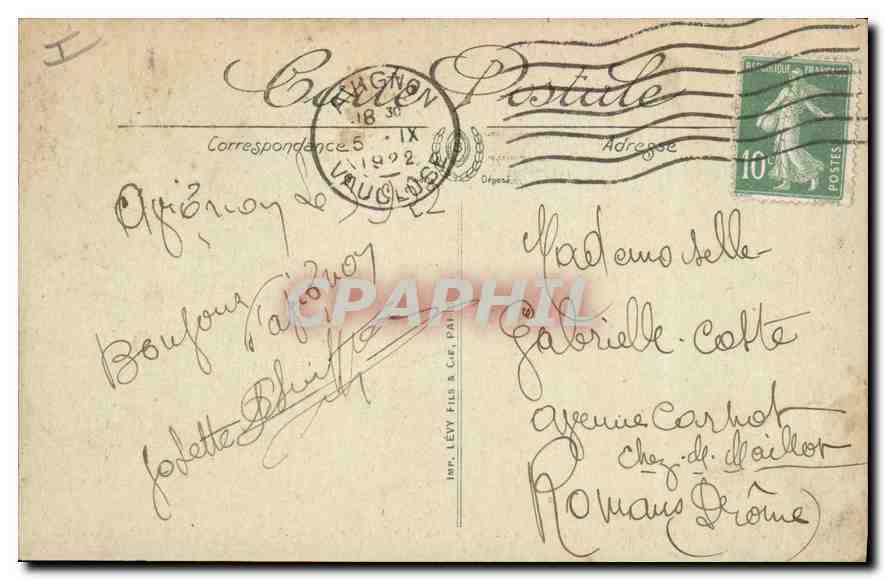 I
Carte Postale
Correspondance
Adresse
Déposé
AVIGNON
18 30
5 . IX
1922
VAUCLUSE
REPUBLIQUE FRANÇAISE
10c
POSTES
Avignon le 5 22
Bonjour d'avignon
Josette
IMP. LÉVY FILS & CIE, PARIS
CPAPHIL
Mademoiselle
Gabrielle Coste
avenue Carnot
chez M. Maillot
Romans (Drôme)